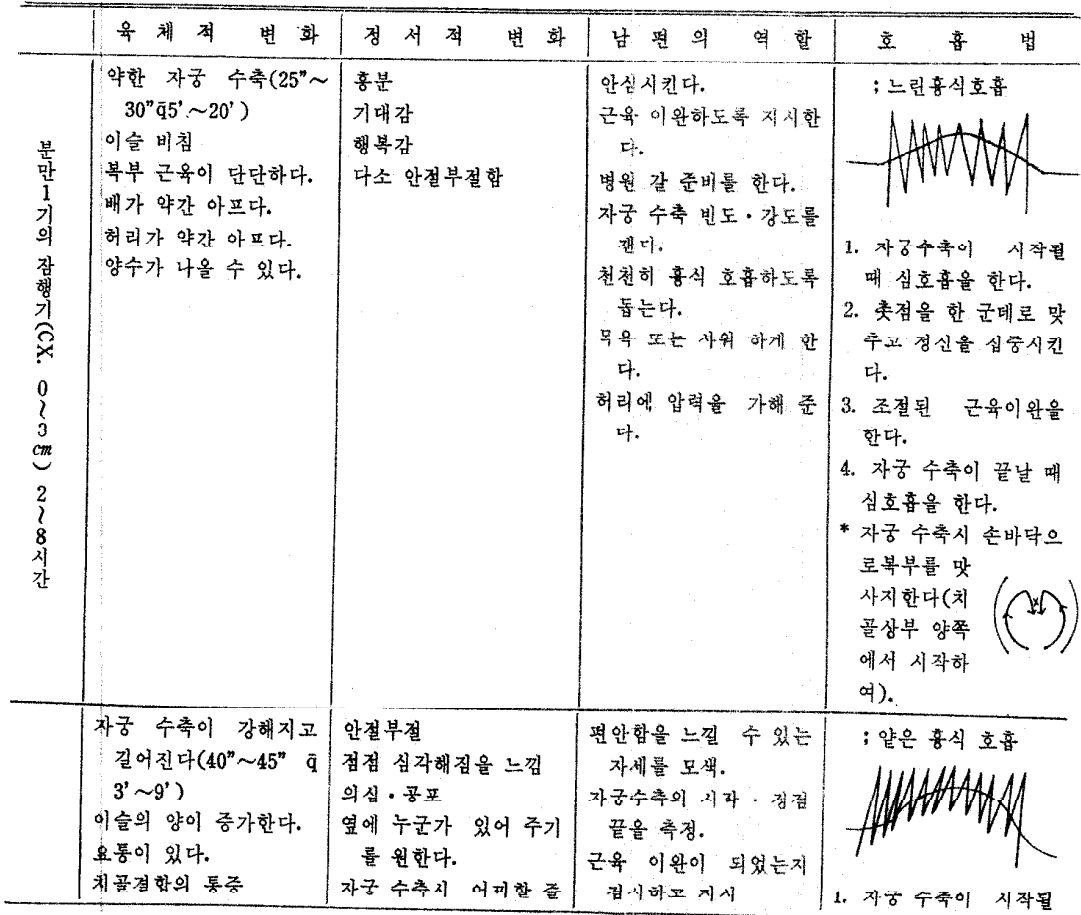 육체적 변화
정서적 변화
남편의 역할
호흡법
분만1기의 잠행기(CX. 0~3cm) 2~8시간
약한 자궁 수축(25"~
30"q̄5'~20')
이슬 비침
복부 근육이 단단하다.
배가 약간 아프다.
허리가 약간 아프다.
양수가 나올 수 있다.
흥분
기대감
행복감
다소 안절부절함
안심시킨다.
근육 이완하도록 지시한
다.
병원 갈 준비를 한다.
자궁 수축 빈도·강도를
잰다.
천천히 흉식 호흡하도록
돕는다.
목욕 또는 샤워 하게 한
다.
허리에 압력을 가해 준
다.
;느린흉식호흡
1. 자궁수축이 시작될
때 심호흡을 한다.
2. 촛점을 한 군데로 맞
추고 정신을 집중시킨
다.
3. 조절된 근육이완을
한다.
4. 자궁 수축이 끝날 때
심호흡을 한다.
* 자궁 수축시 손바닥으
로복부를 맛
사지한다(치
골상부 양쪽
에서 시작하
여).
자궁 수축이 강해지고
길어진다(40"~45" q̄
3'~9')
이슬의 양이 증가한다.
요통이 있다.
치골결합의 통증
안절부절
점점 심각해짐을 느낌
의심·공포
옆에 누군가 있어 주기
를 원한다.
자궁 수축시 어찌할 줄
편안함을 느낄 수 있는
자세를 모색.
자궁수축의 시작·정점
끝을 측정.
근육 이완이 되었는지
검사하고 지시
;얕은 흉식 호흡
1. 자궁 수축이 시작될